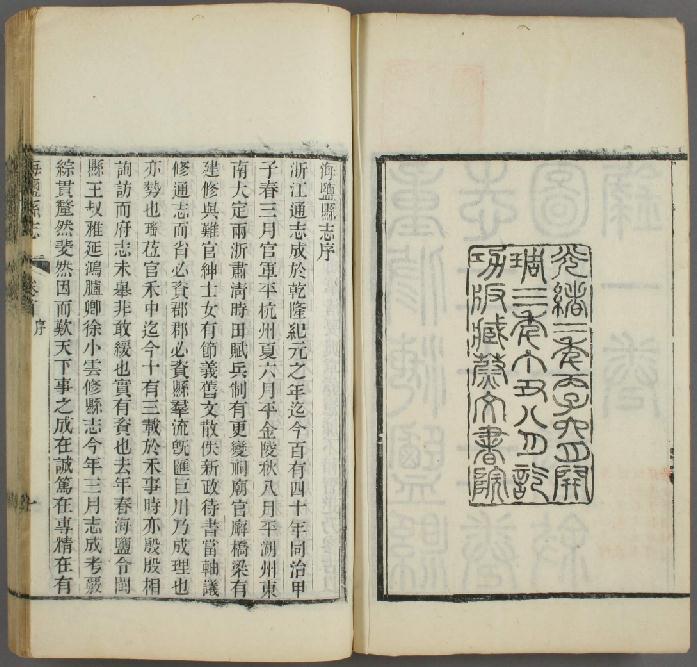 光緒二年丙子六月開
琱三年丁丑八月訖
功版藏蔚文書院
海鹽縣志序
浙江通志成於乾隆紀元之年迄今百有四十年同治甲
子春三月官軍平杭州夏六月平金陵秋八月平湖州東
南大定兩浙肅淸時田賦兵制有更變祠廟官廨橋梁有
建修吳難官紳士女有節義舊文散佚新政待書當軸議
修通志而省必資郡郡必資縣羣流旣匯巨川乃成理也
亦勢也瑤蒞官禾中迄今十有三載於禾事時亦殷殷相
詢訪而府志未舉非敢緩也實有資也去年春海鹽令閩
縣王叔雅延鴻臚卿徐小雲修縣志今年三月志成考覈
綜貫釐然斐然因而歎天下事之成在誠篤在專精在有
海鹽縣志
卷首
序